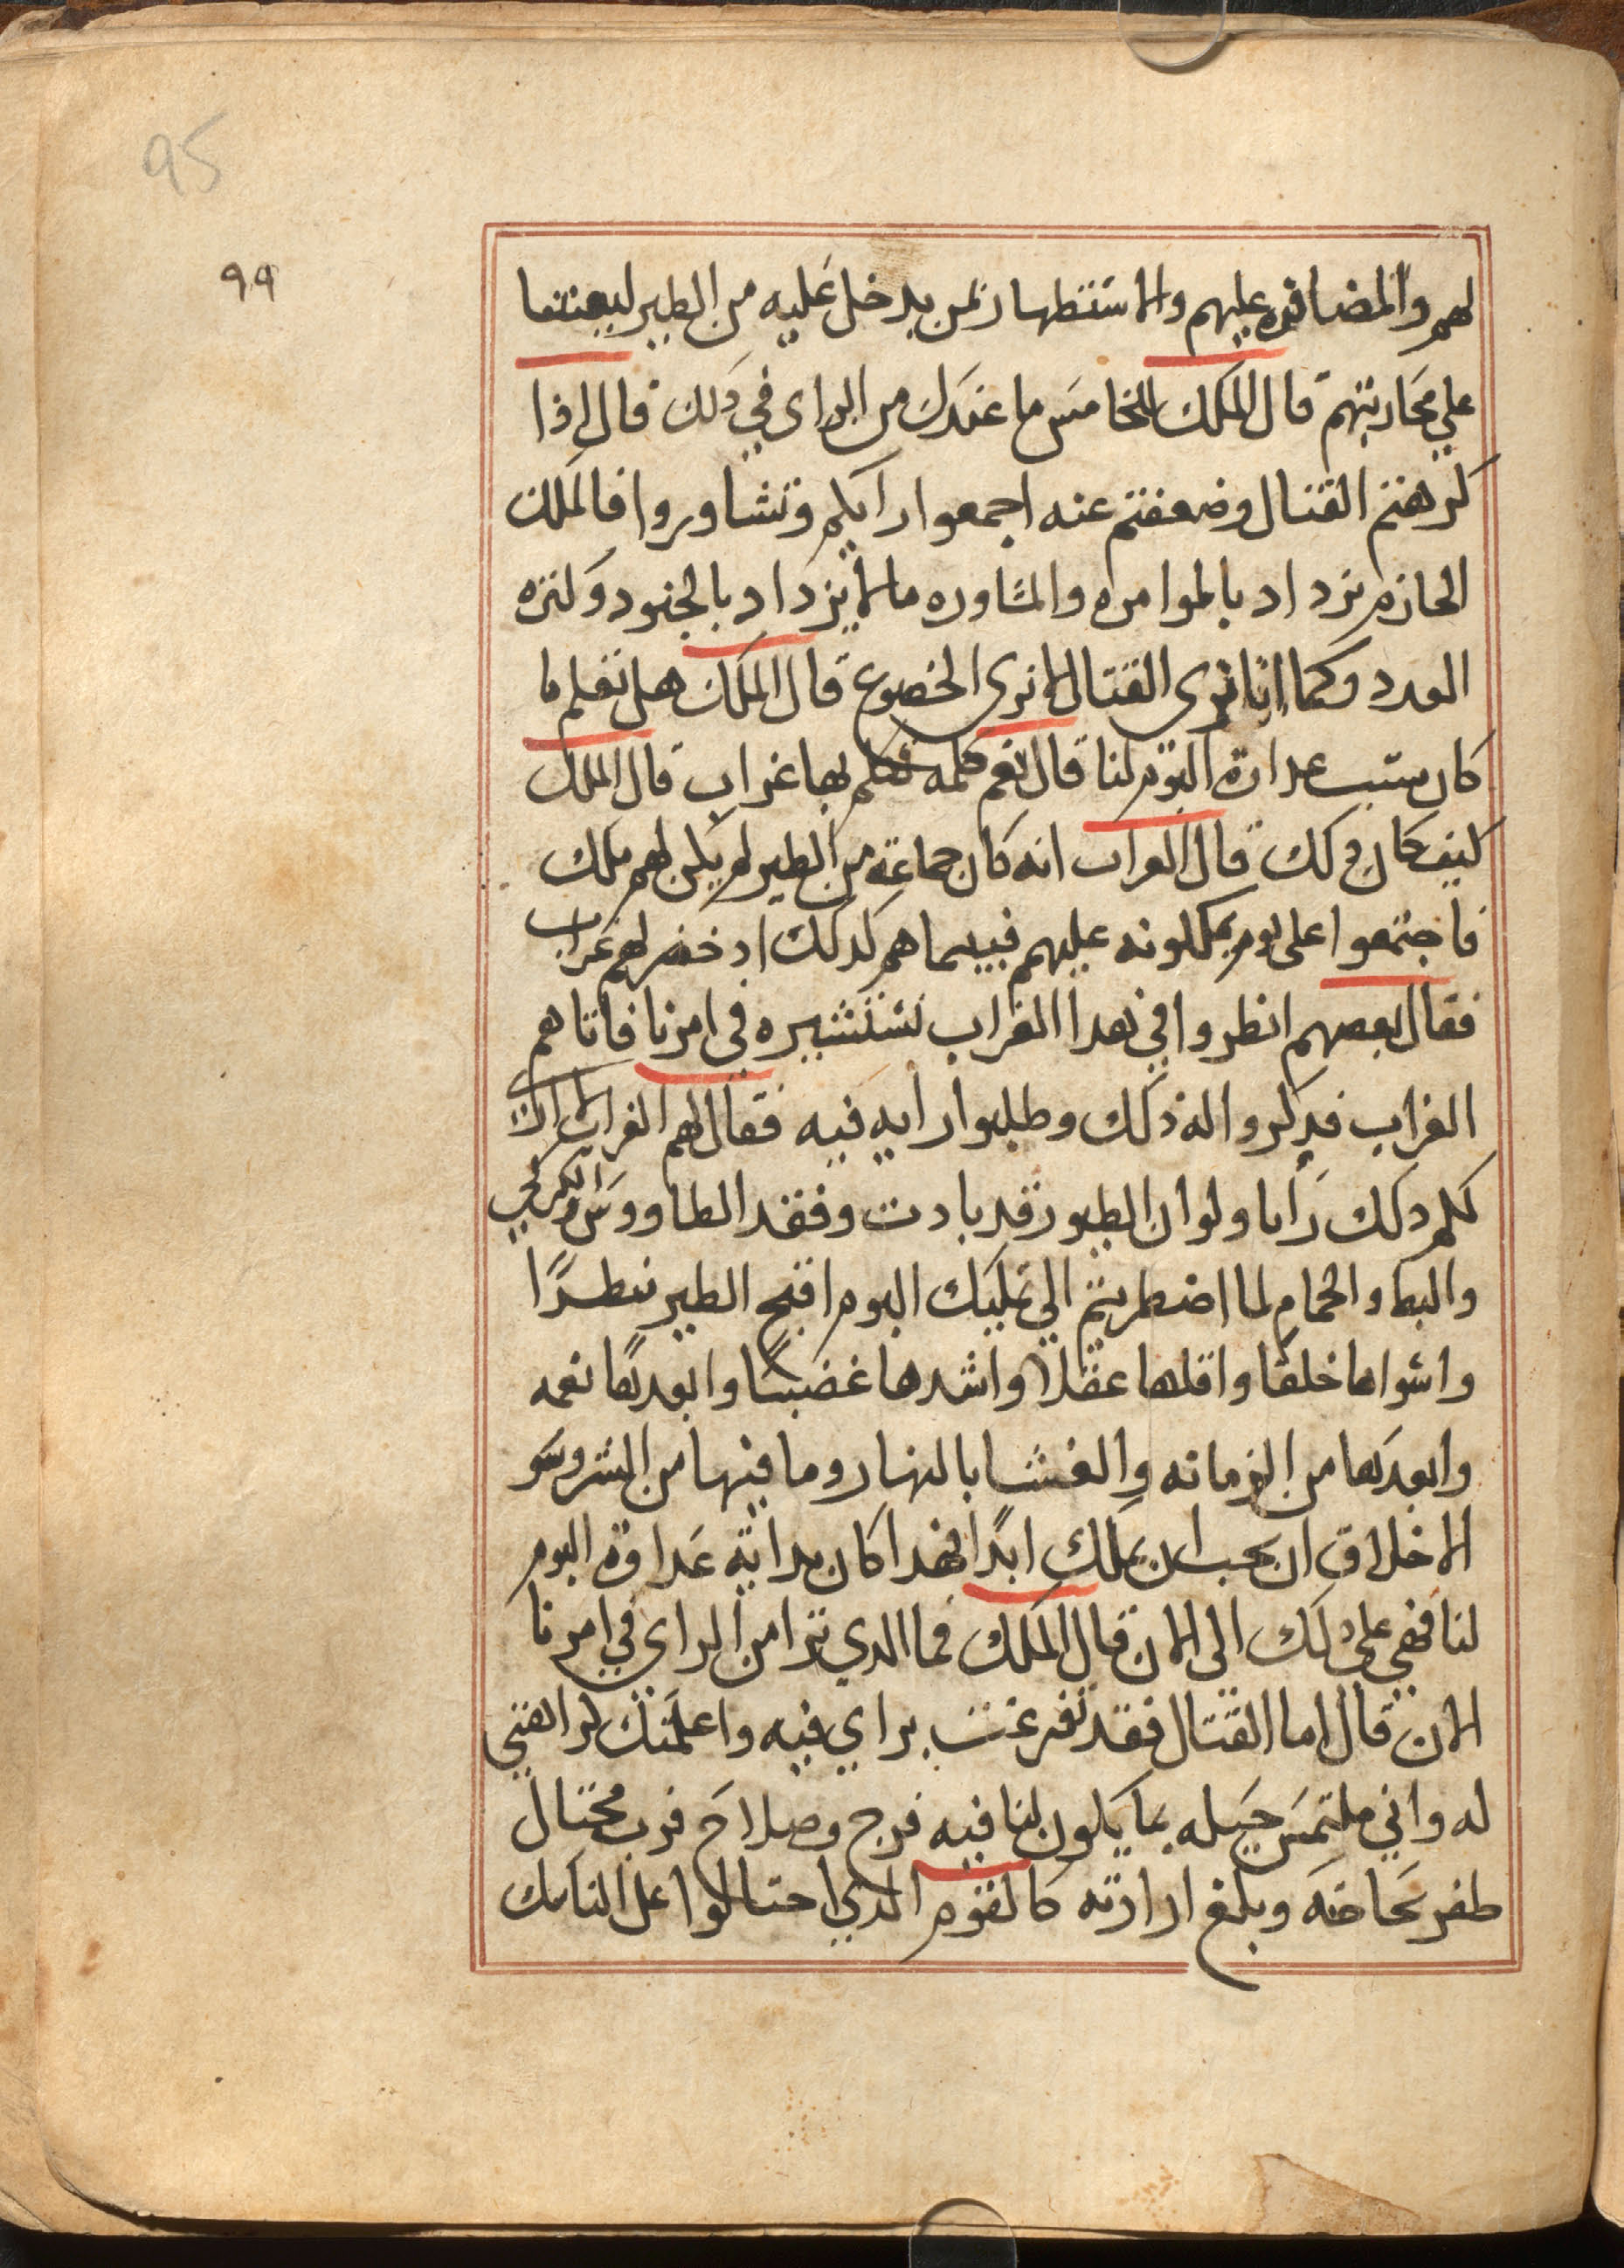 95
٩٩
لهم والمضافره عليهم والاستظهار بمن يدخل عليه من الطير ليعيننا
علي محاربتهم قال الملك للخامس ما عندك من الراى في ذلك قال اذا
كرهتم القتال وضعفتم عنه اجمعوا رايكم وتشاوروا فالملك
الحازم يزداد بالموامره والمشاوره ما لا يزداد بالجنود وكثره
العدد وكما انا نرى القتال لا نرى الخضوع قال الملك هل تعلم ما
كان سبب عداوة البوم لنا قال نعم كلمه تكلم بها غراب قال الملك
كيف كان ذلك قال الغراب انه كان جماعة من الطير لم يكن لهم ملك
فاجتمعوا على بوم يملكونه عليهم فبينما هم كدلك اد حضر لهم غراب
فقال بعضهم انظروا في هدا الغراب نستشيره في امرنا فاتاهم
الغراب فدكروا له ذلك وطلبوا رايه فيه فقال لهم الغراب لا ارى
لكم دلك رايا ولو ان الطيور قد بادت وفقد الطاووس والكركي
والبط والحمام لما اضطريتم الي تمليك البوم اقبح الطير منظرًا
واشواها خلقا واقلها عقلا واشدها غضبًا وابعدها نعمه
وابعدها من الزمانه والغشا بالنهار وما فيها من الشر وسو
الاخلاق ان يجب ان يملك ابدًا فهدا كان بداية عداوة البوم
لنا فهي على دلك الى الان قال الملك فما الدي ترا من الراي في امرنا
الان قال اما القتال فقد تفرغت براي فيه واعلمتك كراهتي
له واني ملتمس حيله بما يكون لنا فيه فرج وصلاح فرب محتال
ظفر بحاجته وبلغ ارادته كالقوم الدي احتالوا على الناسك